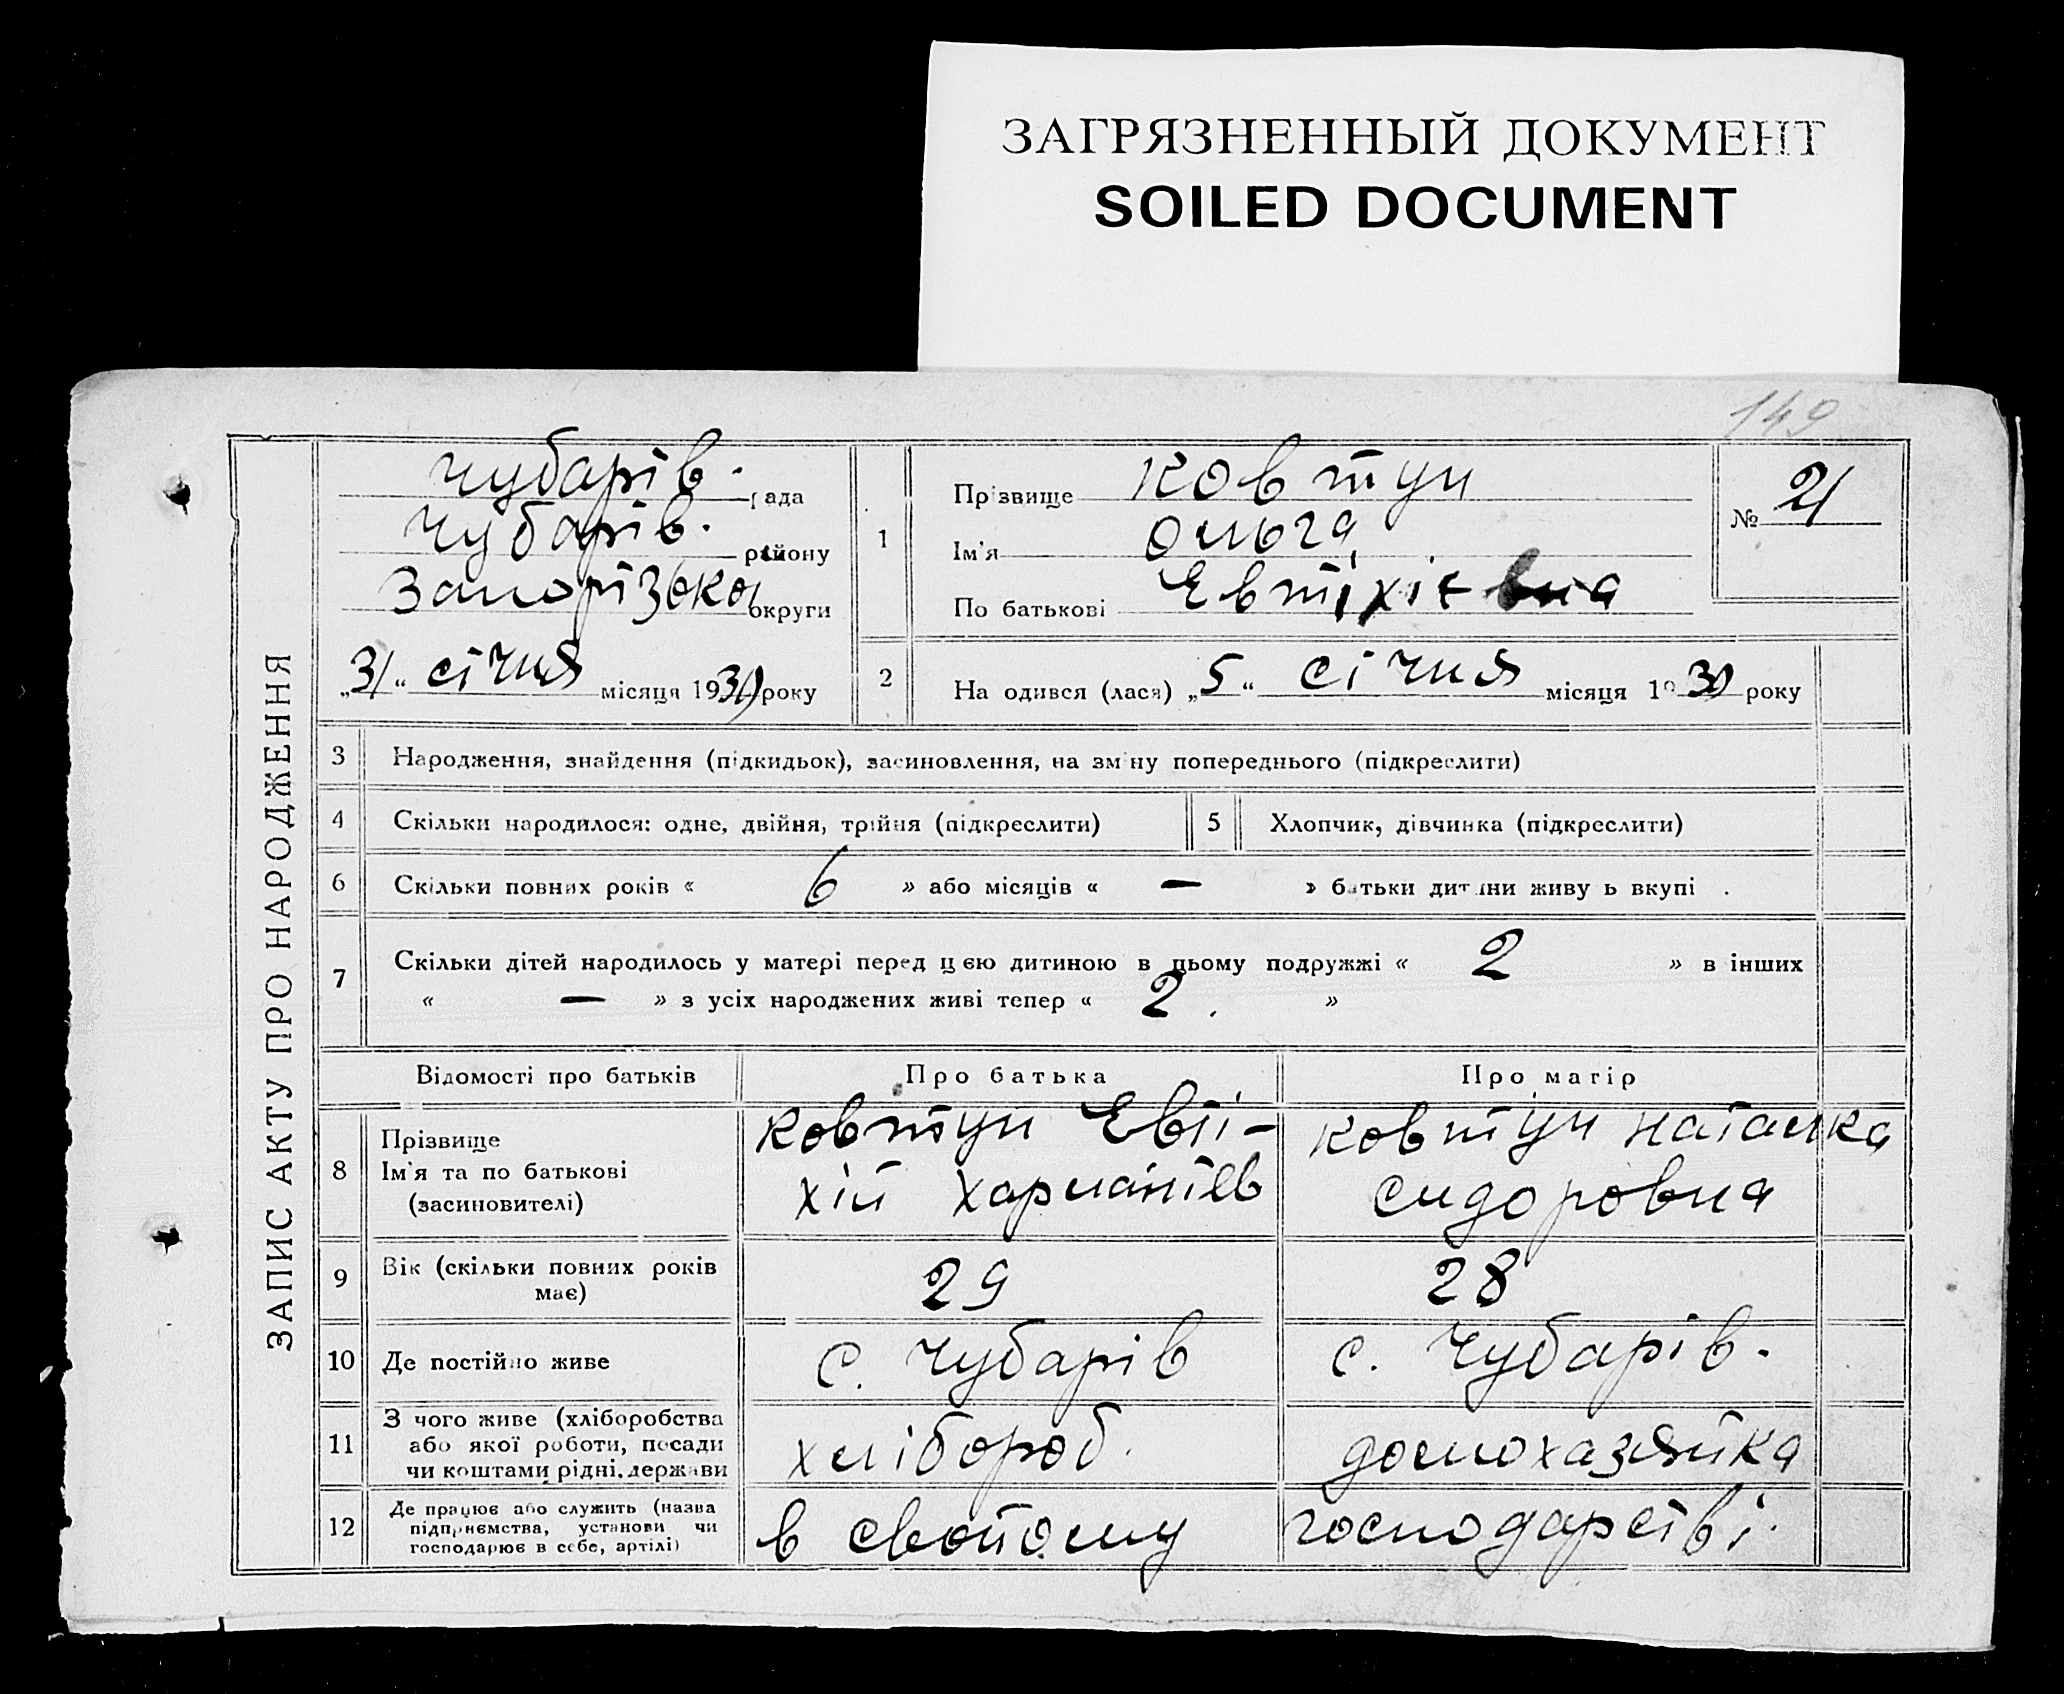 ЗАГРЯЗНЕННЫЙ ДОКУМЕНТ
SOILED DOCUMENT
149
ЗАПИС АКТУ ПРО НАРОДЖЕННЯ
Чубарів. рада
Чубарів. району
Запорізько округи
„31“ січня місяця 1930 року
1
Прізвище Ковтун
Ім'я Ольга
По батькові Евтіхієвна
№ 21
2 На одився (лася) „5“ січня місяця 1930 року
3 Народження, знайдення (підкидьок), засиновлення, на зміну попереднього (підкреслити)
4 Скільки народилося: одне, двійня, трійня (підкреслити) 5 Хлопчик, дівчинка (підкреслити)
6 Скільки повних років « 6 » або місяців « — » батьки дитини живу ь вкупі .
7 Скільки дітей народилось у матері перед цією дитиною в цьому подружжі « 2 » в інших
« — » з усіх народжених живі тепер « 2. »
Відомості про батьків Про батька Про матір
8 Прізвище
Ім'я та по батькові
(засиновителі)
Ковтун Евті-
хій Харлантіев
Ковтун Наталка
Сидоровна
9 Вік (скільки повних років
має)
29 28
10 Де постійно живе с. Чубарів с. Чубарів.
11 З чого живе (хліборобства
або якої роботи, посади
чи коштами рідні, держави
хлібороб. домохазяйка
12 Де працює або служить (назва
підприємства, установи чи
господарює в себе, артілі)
в свойому господарстві.